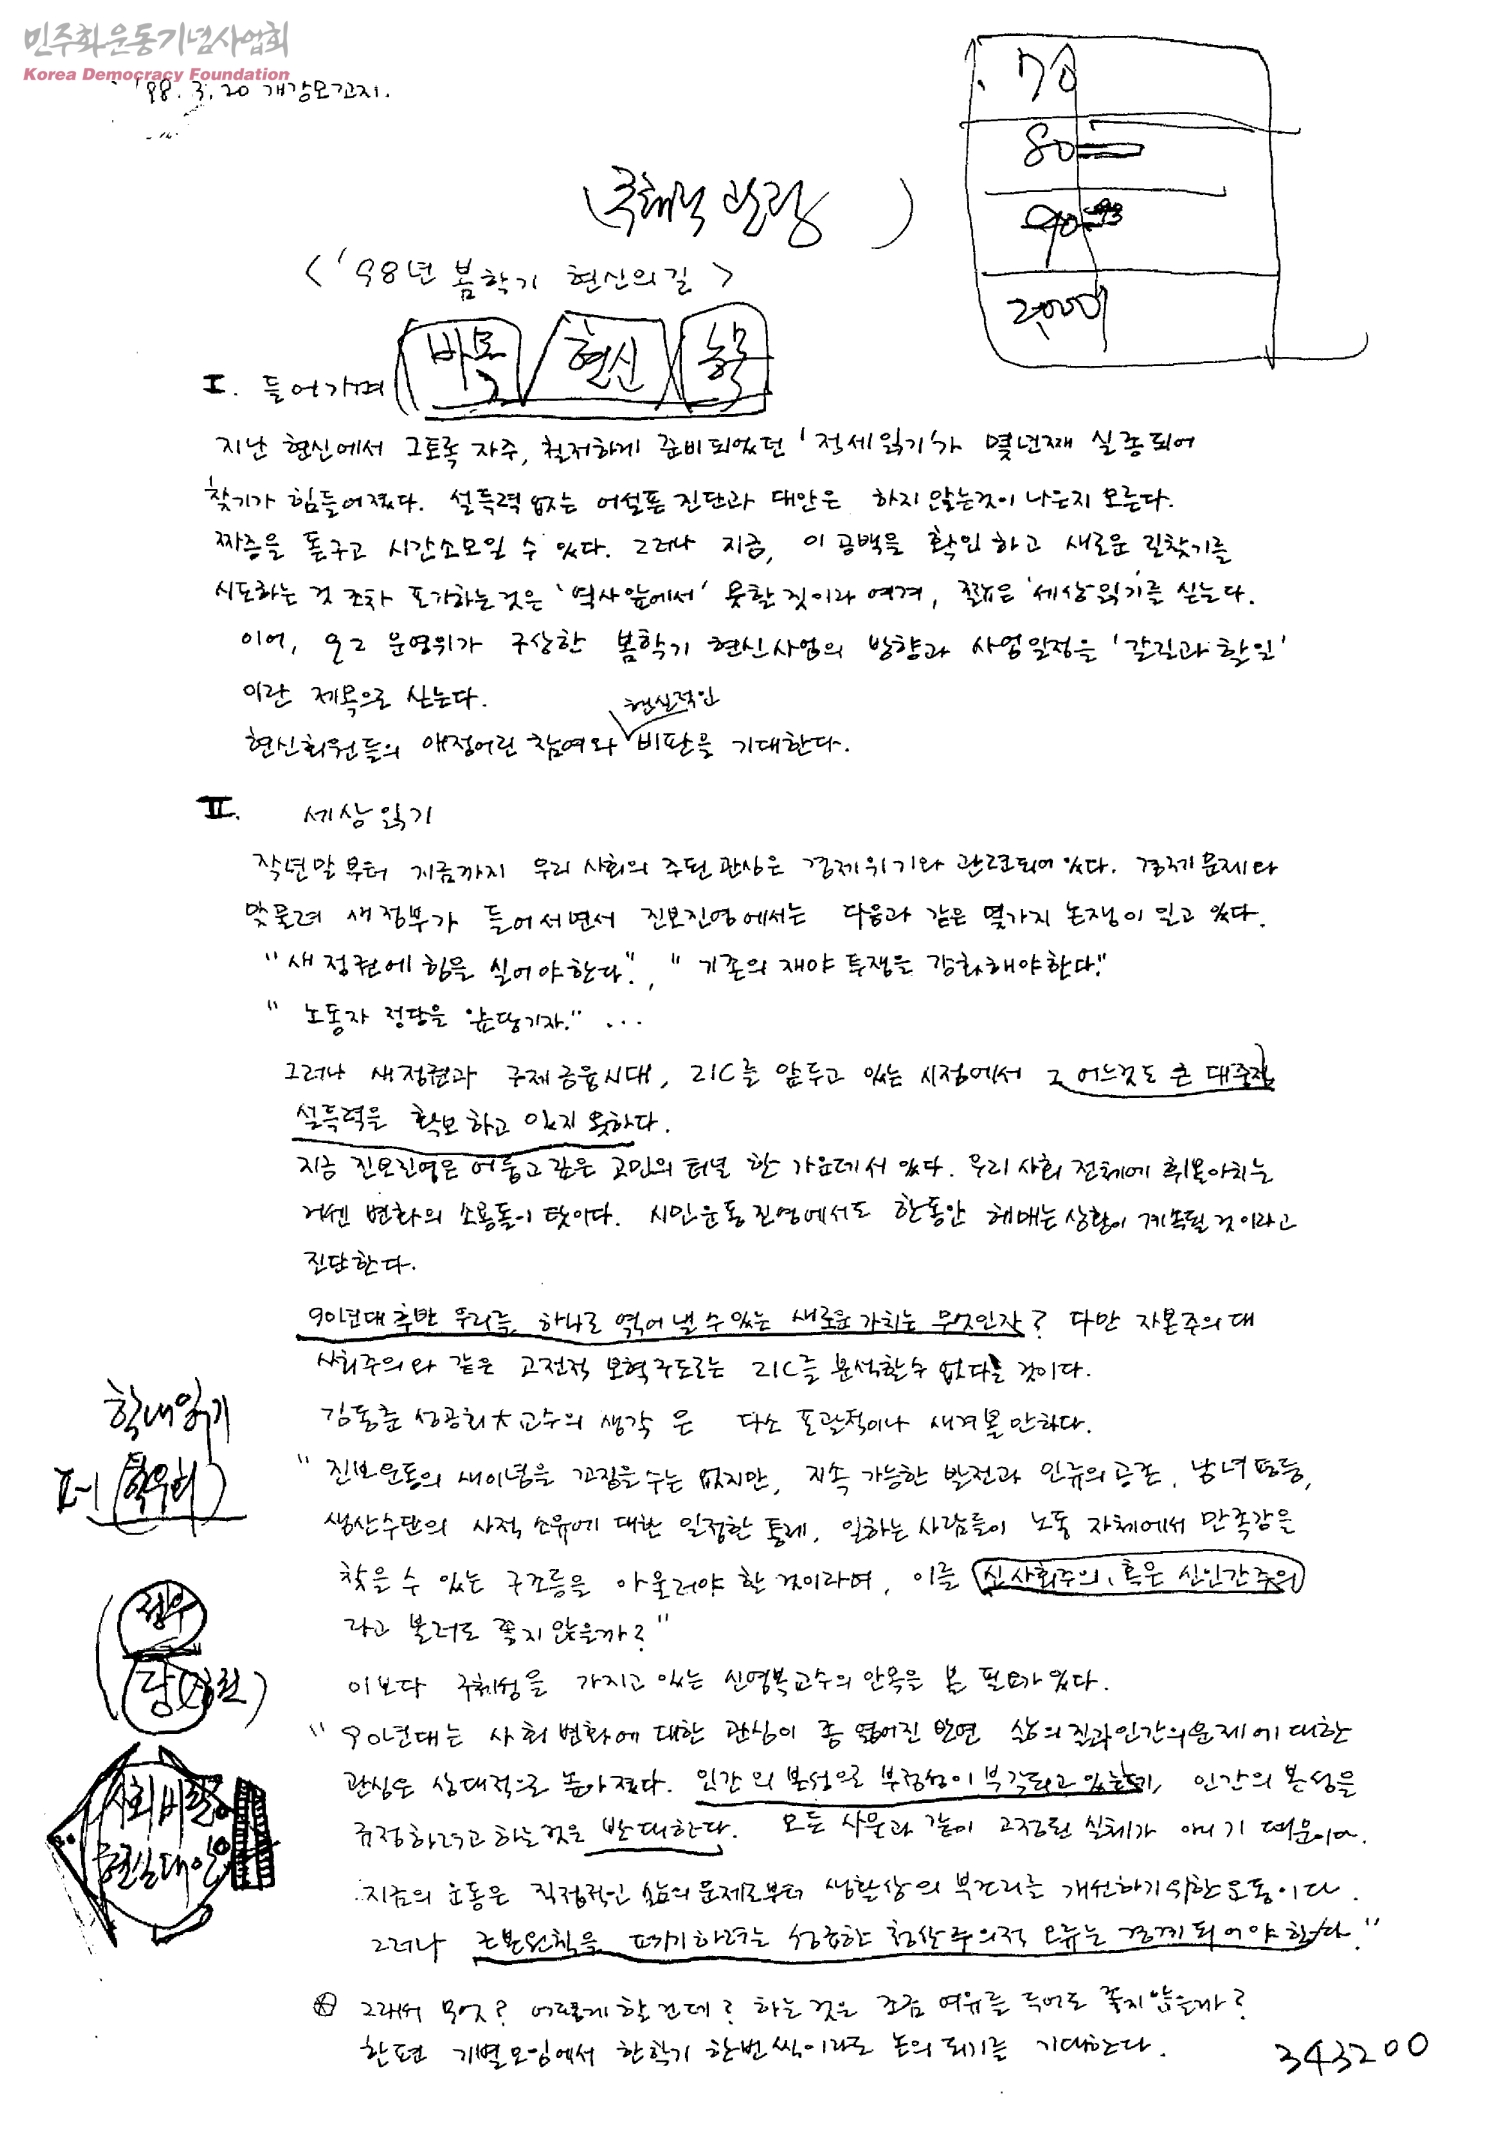 민주화운동기념사업회
Korea Democracy Foundation
'98. 3. 20 개강모꼬지.
70
80
90
2000
< '98년 봄학기 현신의 길 >
I. 들어가며 ( 바목 / 현신
지난 현신에서 그토록 자주, 철저하게 준비되었던 '정세읽기'가 몇년째 실종되어
찾기가 힘들어졌다. 설득력 없는 어설픈 진단과 대안은 하지 않는것이 나은지 모른다.
짜증을 돋구고 시간소모일 수 있다. 그러나 지금, 이 공백을 확인하고 새로운 길찾기를
시도하는 것 조차 포기하는것은 '역사앞에서' 못할 짓이라 여겨, 짧은 '세상읽기'를 싣는다.
이어, 운영위가 구상한 봄학기 현신사업의 방향과 사업일정을 '갈길과 할일'
이란 제목으로 싣는다.
현신회원들의 애정어린 참여와 현실적인 비판을 기대한다.
II. 세상읽기
작년말부터 지금까지 우리 사회의 주된 관심은 경제위기와 관련되어 있다. 경제문제와
맞물려 새정부가 들어서면서 진보진영에서는 다음과 같은 몇가지 논쟁이 일고 있다.
"새정권에 힘을 실어야한다.", "기존의 재야 투쟁을 강화해야한다."
"노동자 정당을 앞당기자." ...
그러나 새정권과 국제금융시대, 21C를 앞두고 있는 시점에서 그 어느것도 큰 대중적
설득력을 확보하고 있지 못하다.
지금 진보진영은 어둡고 깊은 고민의 터널 한 가운데서 있다. 우리사회 전체에 휘몰아치는
거센 변화의 소용돌이 탓이다. 시민운동 진영에서도 한동안 헤매는 상황이 계속될 것이라고
진단한다.
90년대 후반 우리를 하나로 엮어 낼 수 있는 새로운 가치는 무엇인가? 다만 자본주의 대
사회주의와 같은 고전적 모형구도로는 21C를 분석할수 없다는 것이다.
김동춘 성공회大교수의 생각은 다소 포괄적이나 새겨볼만하다.
"진보운동의 새이념을 꼬집을수는 없지만, 지속 가능한 발전과 인류의 공존, 남녀평등,
생산수단의 사적소유에 대한 일정한 통제, 일하는 사람들이 노동 자체에서 만족감을
찾을 수 있는 구조등을 아울러야 할 것이라며, 이를 신사회주의, 혹은 신인간주의
라고 불러도 좋지 않을까?"
이보다 구체성을 가지고 있는 신영복교수의 안목을 볼 필요가 있다.
"90년대는 사회변화에 대한 관심이 좀 엷어진 반면 삶의 질과 인간의 문제에 대한
관심은 상대적으로 높아졌다. 인간의 본성으로 부정성이 부각되고 있는, 인간의 본성을
규정하려고 하는것은 반대한다. 모든 사물과 같이 고정된 실체가 아니기 때문이다.
지금의 운동은 직접적인 삶의 문제로부터 생활상의 부조리를 개선하기위한 운동이다.
그러나 근본원칙을 포기하려는 성급한 청산주의적 오류는 경계되어야 한다."
그래서 무엇? 어떻게 할건데? 하는것은 조금 여유를 두어도 좋지않을까?
한편 기별모임에서 한학기 한번씩이라도 논의되기를 기대한다.
학내읽기
II-1 (학우회)
정우
사회비평
현실대안
343200